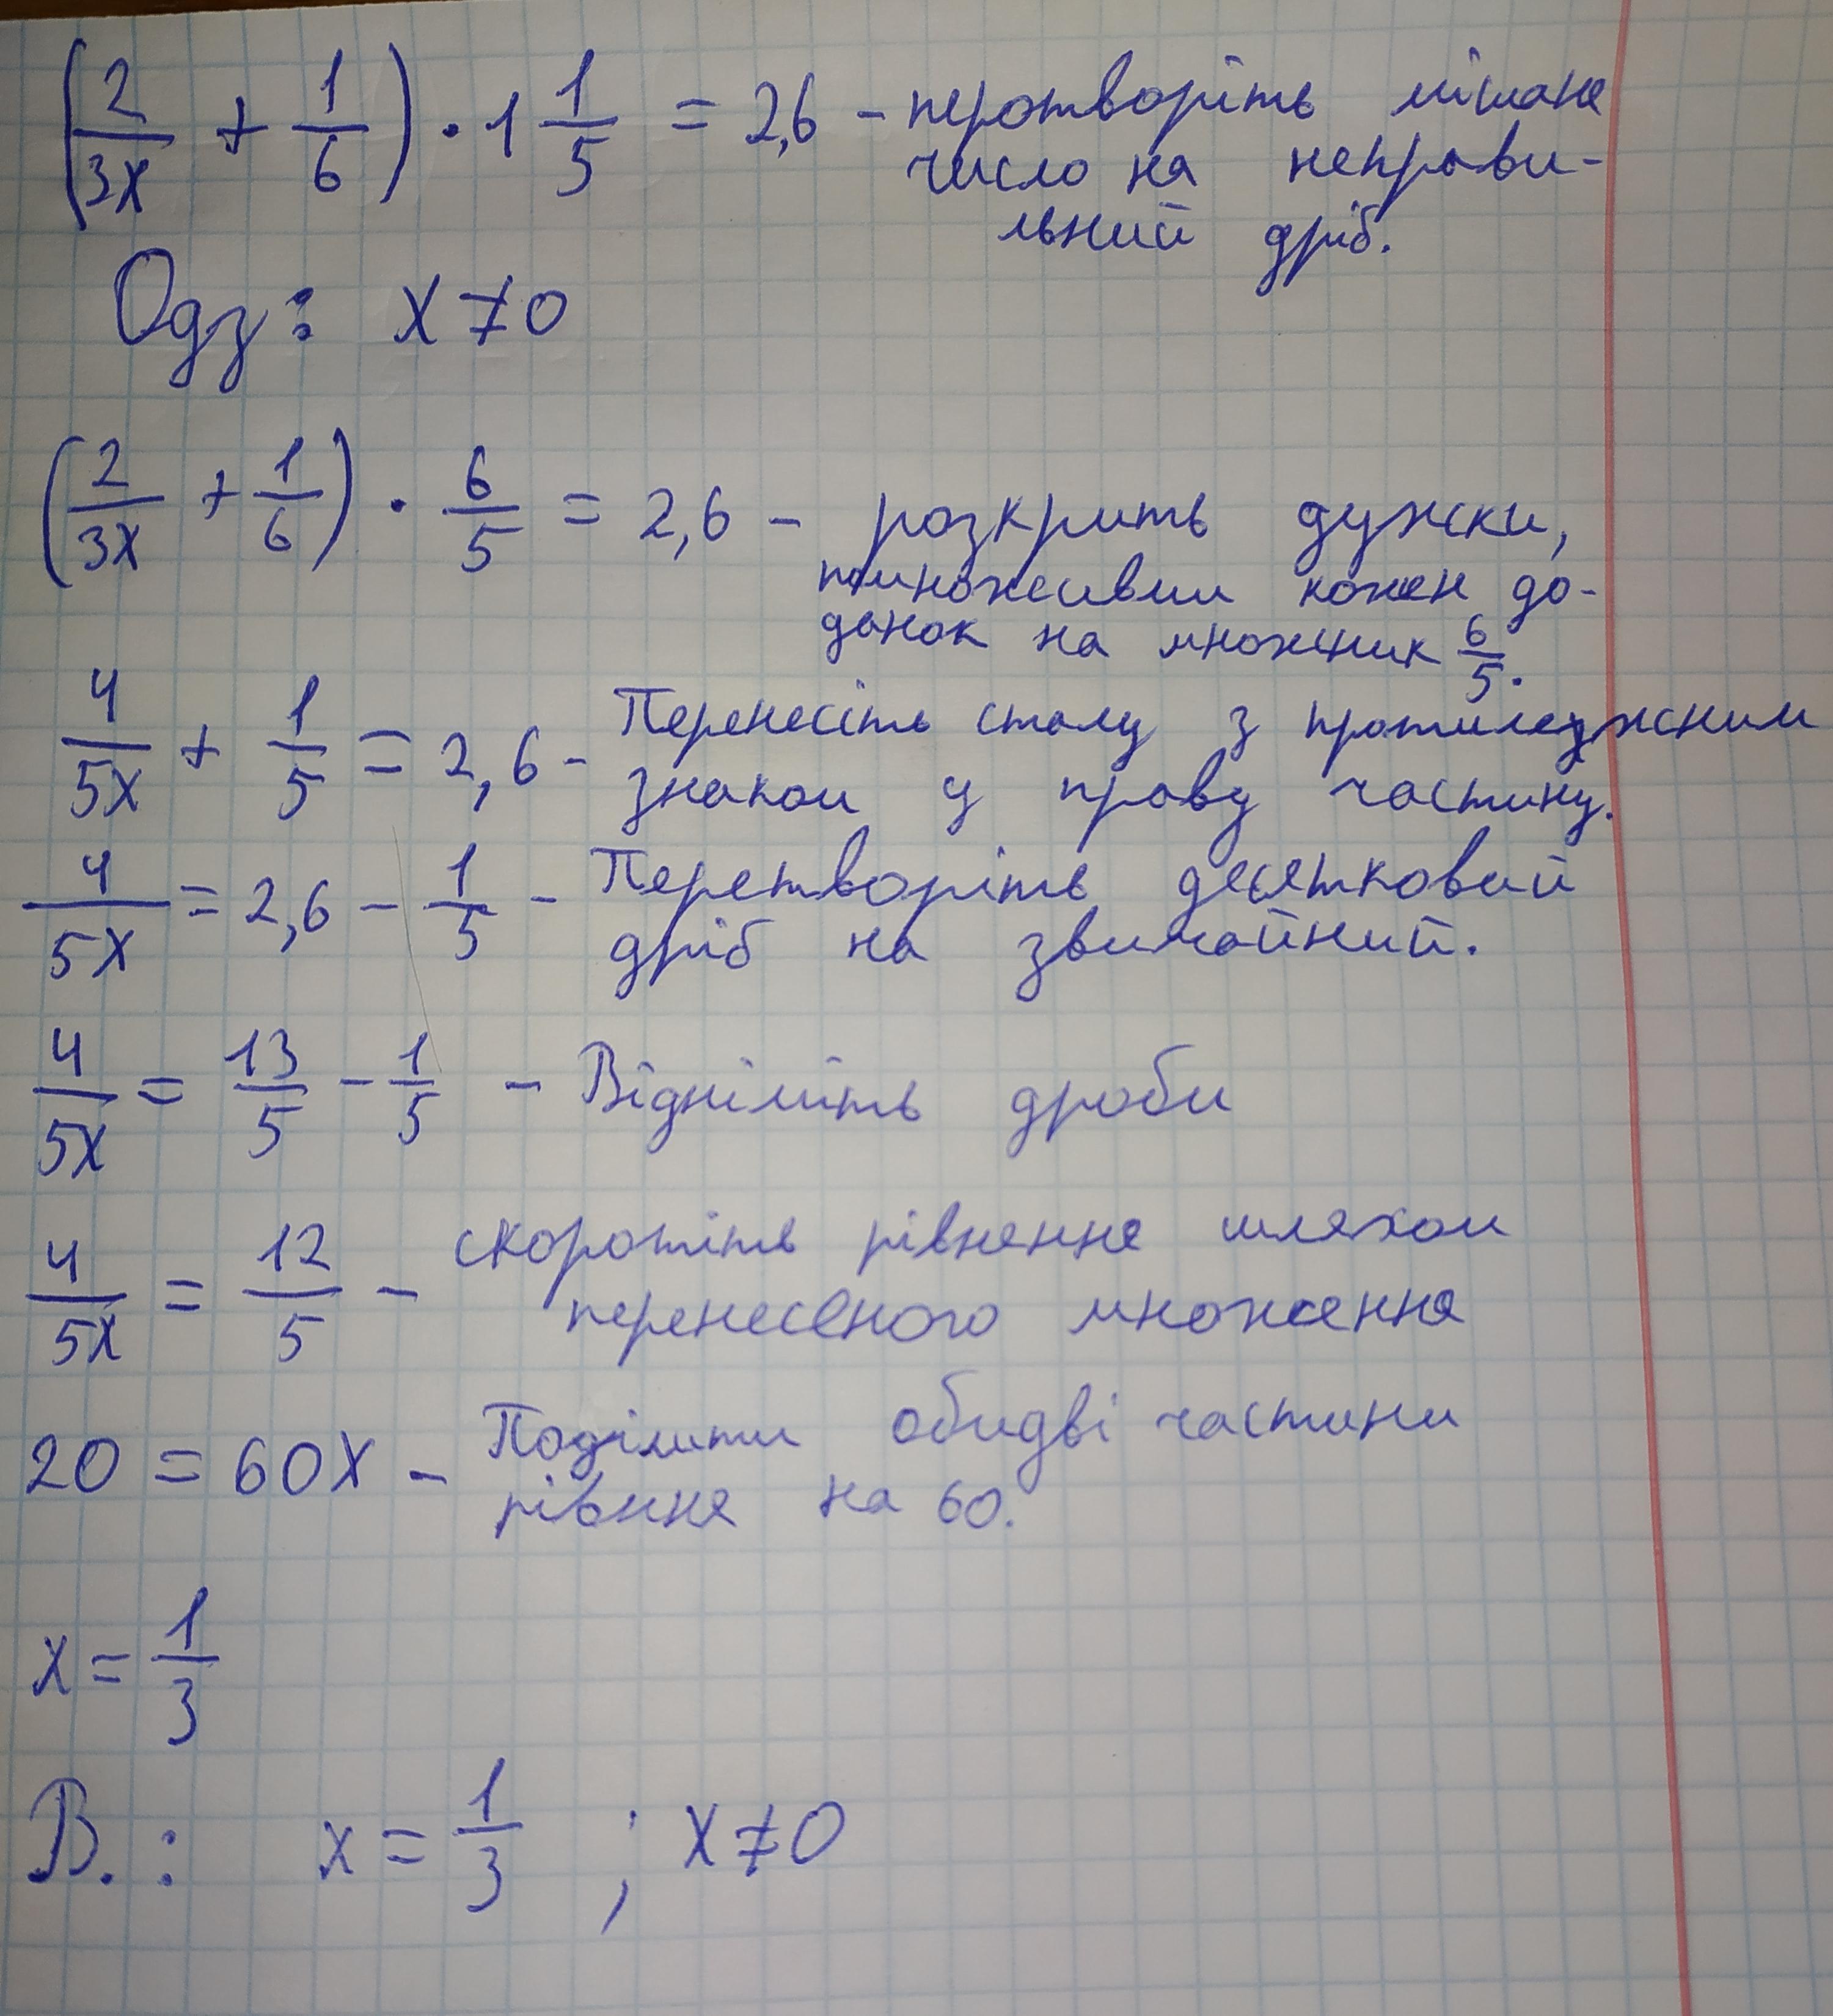 (2/3x + 1/6) · 1 1/5 = 2,6 – перотворіть мішане
число на неправи-
льний дріб.
Одз: x ≠ 0
(2/3x + 1/6) · 6/5 = 2,6 – розкрить дужки,
помноживши кожен до-
данок на множник 6/5.
4/5x + 1/5 = 2,6 – Перенесіть сталу з протилежним
знаком у праву частину.
4/5x = 2,6 – 1/5 – Перетворіть десятковий
дріб на звичайний.
4/5x = 13/5 – 1/5 – Відніміть дроби
4/5x = 12/5 – скоротіть рівняння шляхом
перенесеного множення
20 = 60x – Поділити обидві частини
рівння на 60.
x = 1/3
В.: x = 1/3 ; x ≠ 0